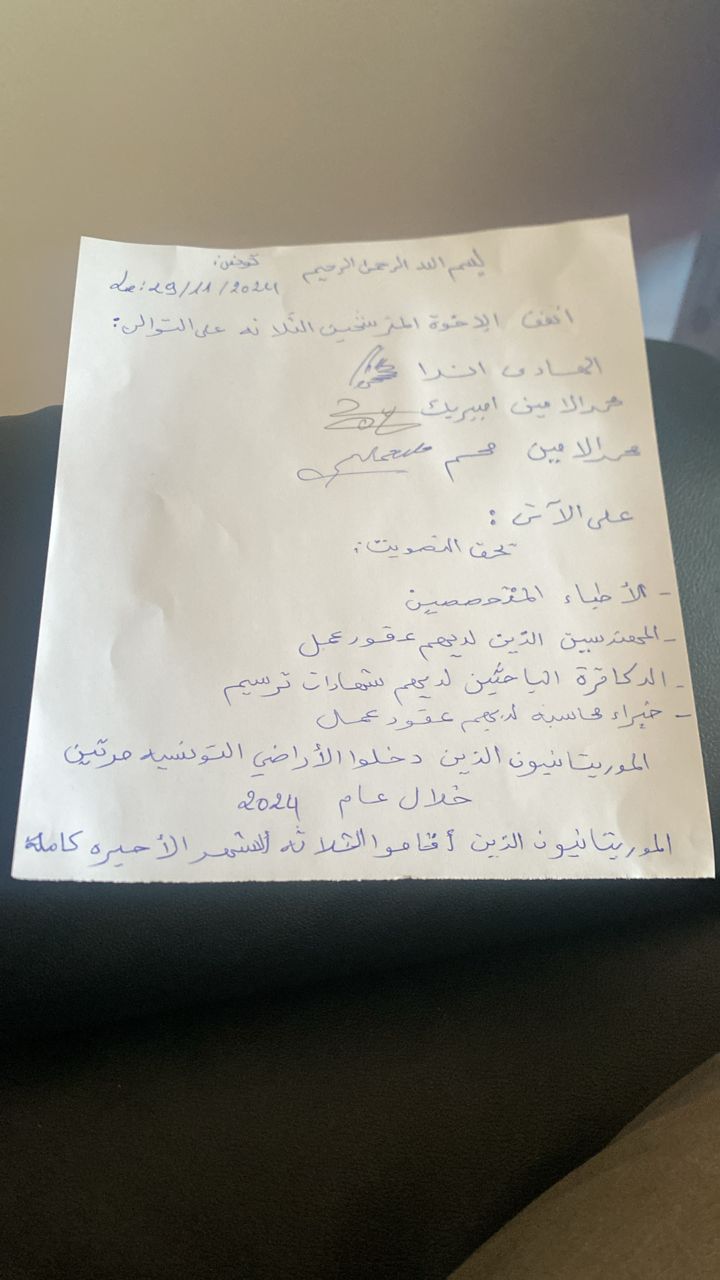 بسم الله الرحمن الرحيم تونس:
le: 29/11/2024
اتفق الإخوة المترشحين الثلاثه على التوالى:
الهادى اندا
محمد الامين امبيريك
محمد الامين محم
على الآتى:
تحق التصويت:
- الأطباء المتخصصين
- المهندسين الذين لديهم عقود عمل
- الدكاترة الباحثين لديهم شهادات ترسيم
- خبراء محاسبه لديهم عقود عمل
الموريتانيون الذين دخلوا الأراضي التونسيه مرتين
خلال عام 2024
الموريتانيون الذين أقاموا الثلاثه أشهر الأخيره كاملة